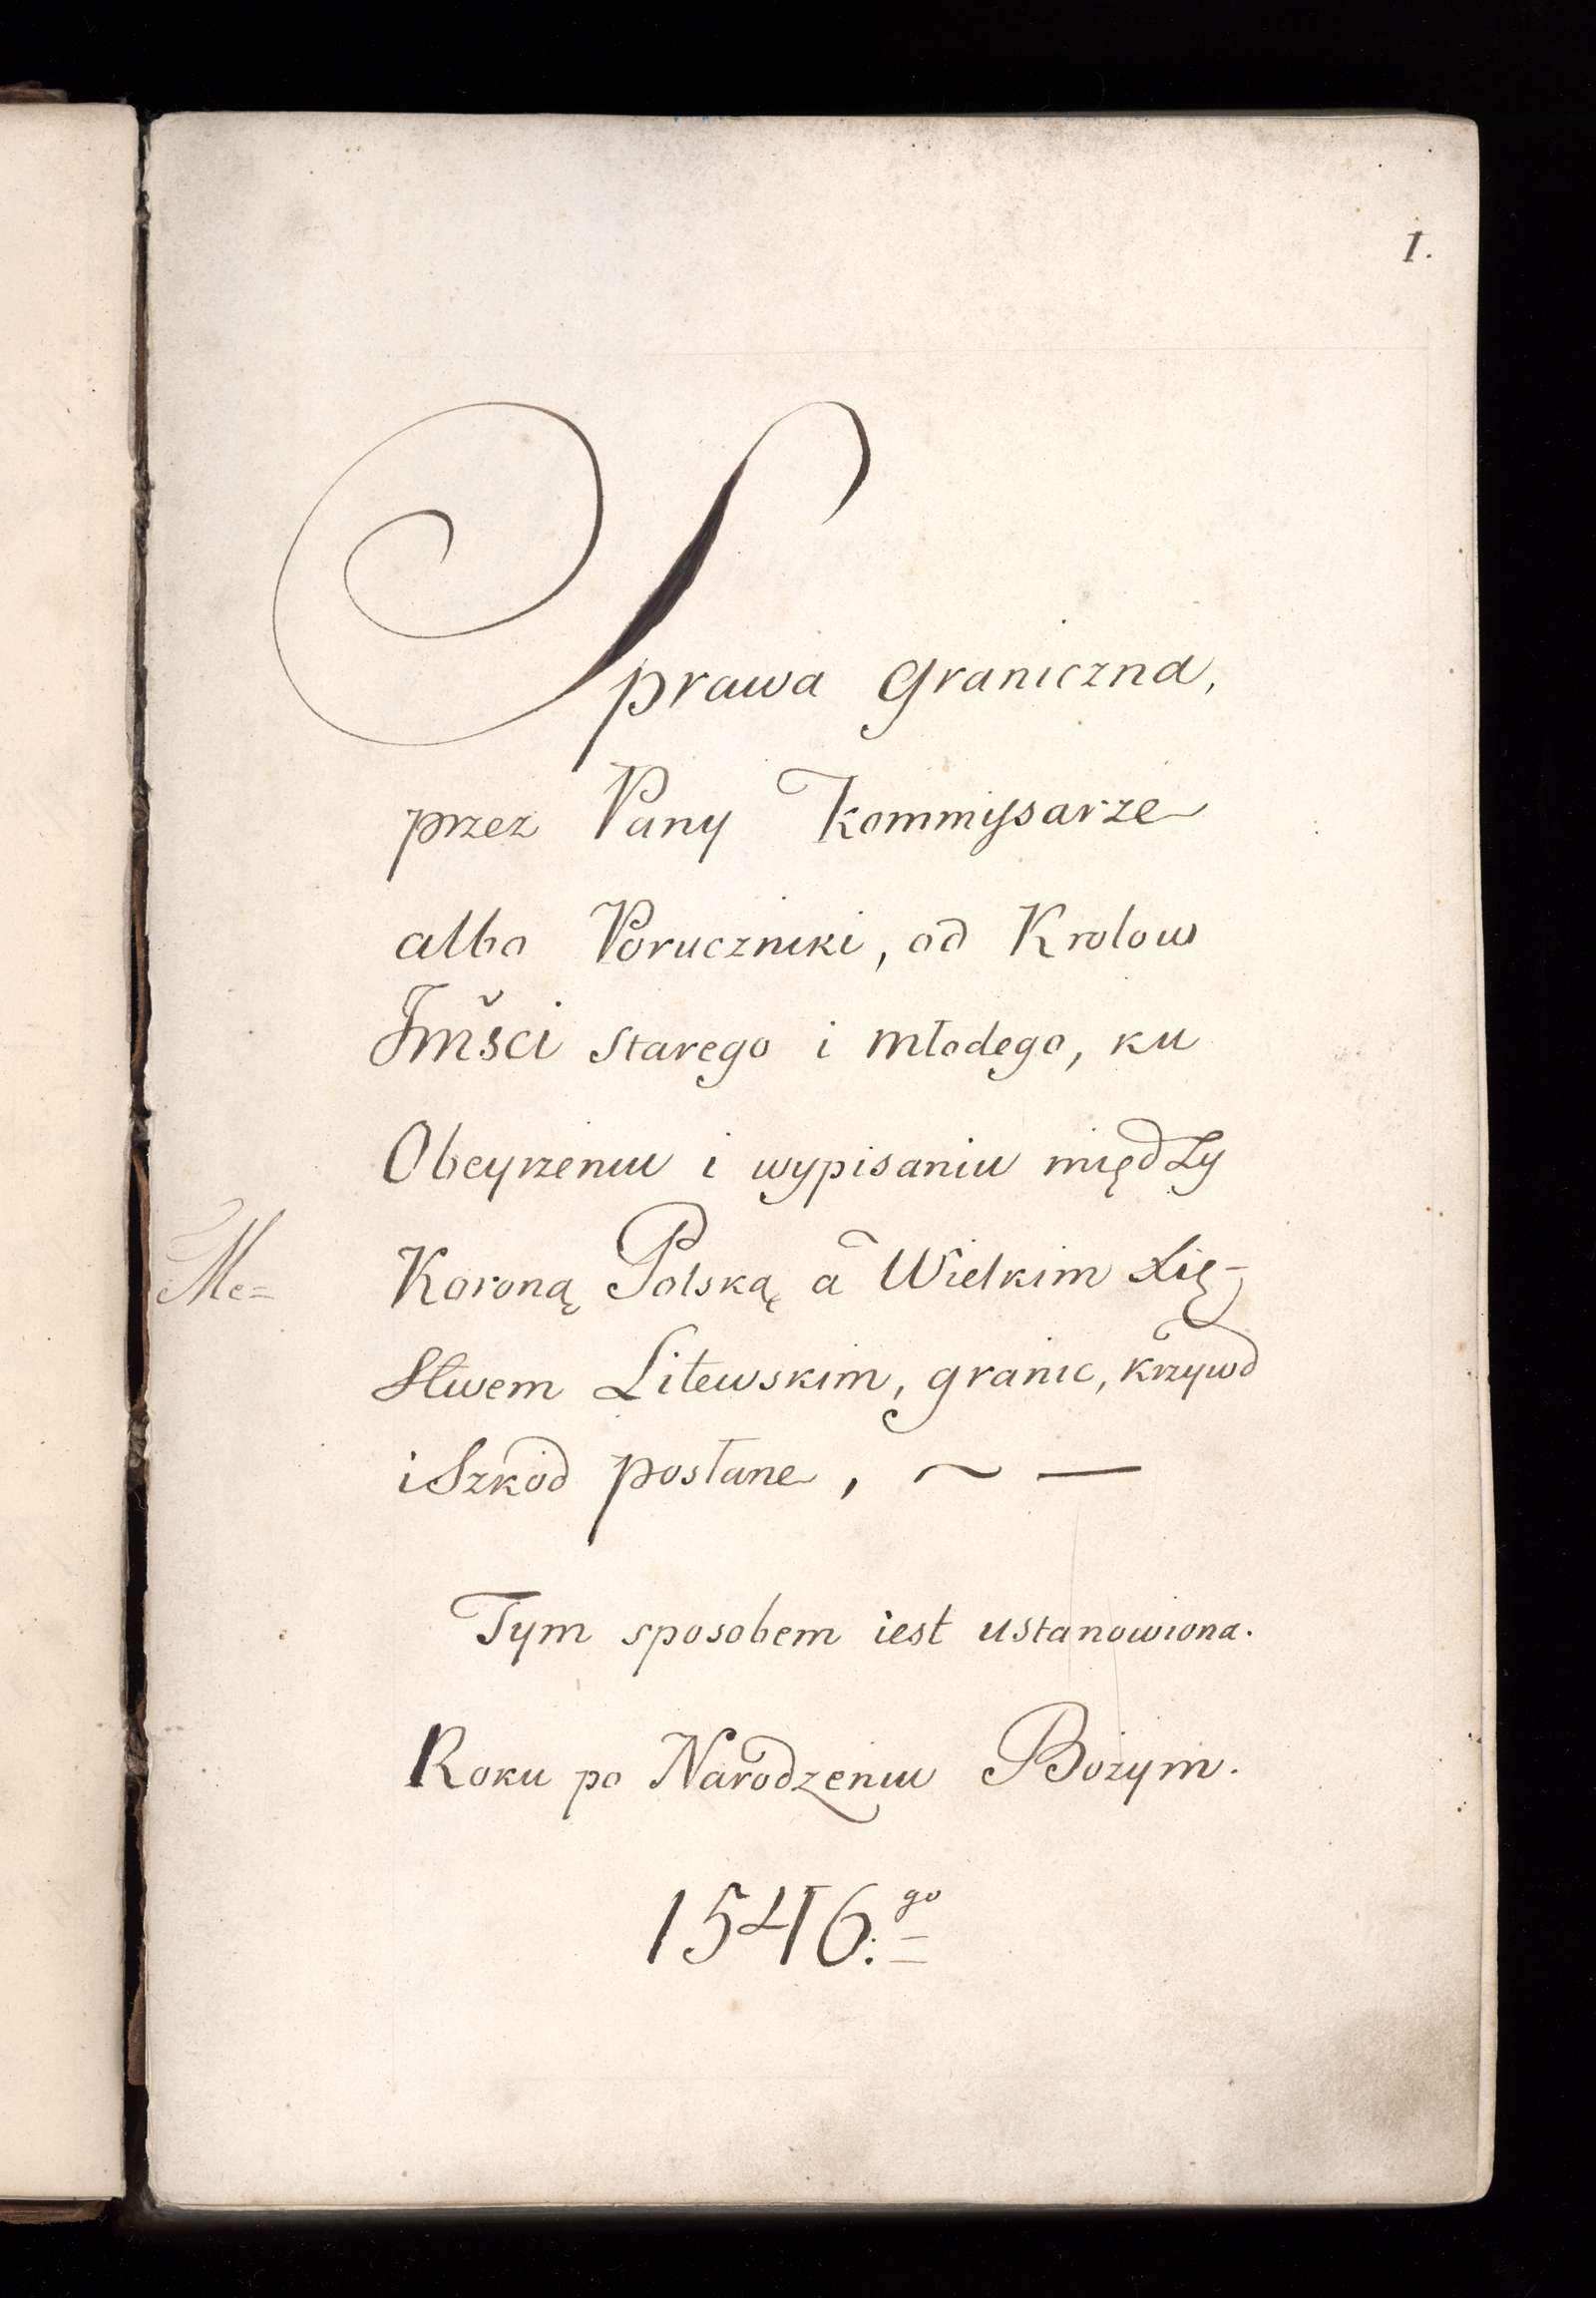 1.
Sprawa graniczna,
przez Pany Kommissarze
albo Poruczniki, od Krolow
Jmści starego i młodego, ku
Obeyrzeniu i wypisaniu między
Me= Koroną Polską a Wielkim Xię-
Stwem Litewskim, granic, krzywd
i Szkod posłane, ~ —
Tym sposobem iest ustanowiona.
Roku po Narodzeniu Bożym.
1546.go